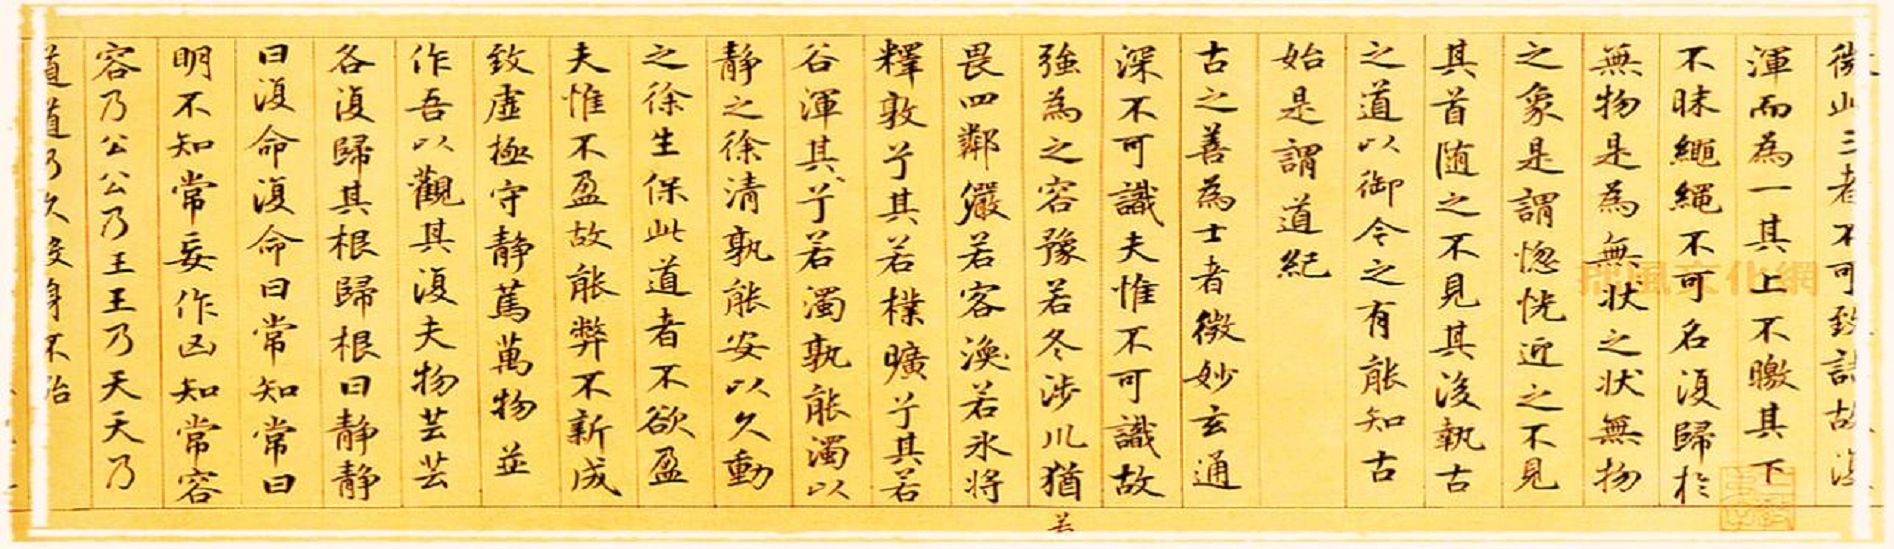 微此三者不可致詰故混
渾而為一其上不皦其下
不昧繩繩不可名復歸於
無物是為無狀之狀無物
之象是謂惚恍迎之不見
其首随之不見其後執古
之道以御今之有能知古
始是謂道紀
古之善為士者微妙玄通
深不可識夫惟不可識故
強為之容豫若冬涉川猶
若
畏四鄰儼若客渙若氷將
釋敦兮其若樸曠兮其若
谷渾其兮若濁孰能濁以
静之徐清孰能安以久動
之徐生保此道者不欲盈
夫惟不盈故能弊不新成
致虛極守静篤萬物並
作吾以觀其復夫物芸芸
各復歸其根歸根曰静静
曰復命復命曰常知常曰
明不知常妄作凶知常容
容乃公公乃王王乃天天乃
道道乃久沒身不殆